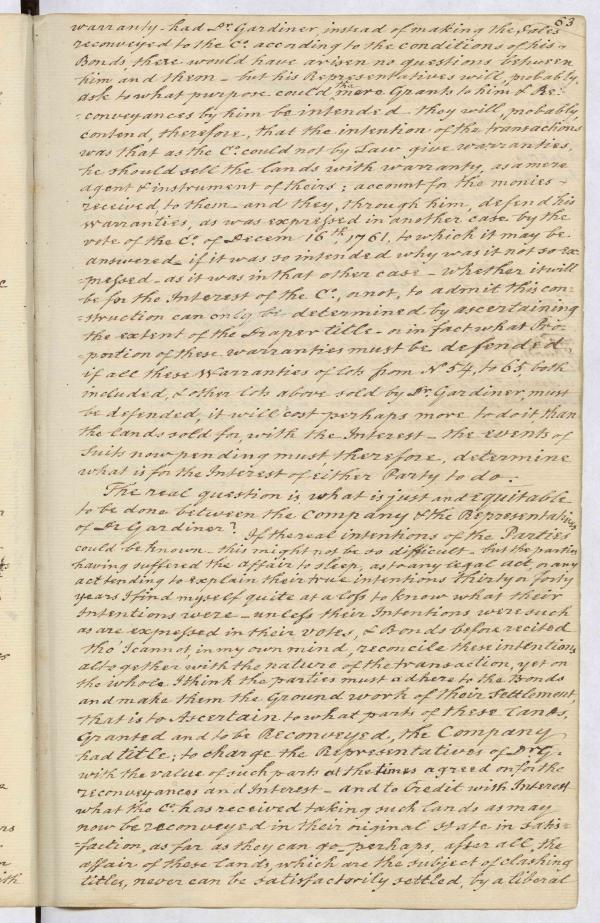 63
warranty - had Dr. Gardiner, instead of making the Sales
reconveyed to the Co. according to the conditions of his
Bonds, there would have arisen no questions between
him and them - but his Representatives will, probably,
ask to what purpose could the mere Grants to him & Re=
=conveyances by him be intended - they will, probably,
contend, therefore, that the intention of the transactions
was that as the Co. could not by Law give warranties,
he should sell the lands with warranty, as a mere
agent & instrument of theirs; account for the monies -
received to them - and they, through him, defend his
Warranties, as was expressed in another case by the
vote of the Co. of Decem 16th, 1761, to which it may be
answered - if it was so intended why was it not so ex=
=pressed - as it was in that other case - whether it will
be for the Interest of the Co., or not, to admit this con=
=struction can only be determined by ascertaining
the extent of the Draper title - or in fact what Pro=
=portion of these warranties must be defended,
if all these Warranties of lots from No 54, to 65 both
included, & other lots above sold by Dr. Gardiner, must
be defended, it will cost perhaps more to do it than
the lands sold for, with the Interest - the events of
Suits now pending must, therefore, determine
what is for the Interest of either Party to do.
The real question is, what is just and equitable
to be done between the Company & the Representatives
of Dr Gardiner? If the real intentions of the Parties
could be known - this might not be so difficult - but the parties
having suffered the affair to sleep, as to any legal act, or any
act tending to explain their true intentions thirty or forty
years I find myself quite at a loss to know what their
Intentions were - unless their Intentions were such
as are expressed in their votes, & Bonds before recited
tho' I cannot, in my own mind, reconcile these intentions
altogether with the nature of the transaction, yet on
the whole I think the parties must adhere to the Bonds
and make them the Ground work of their Settlement,
that is to Ascertain to what parts of these lands,
Granted and to be Reconveyed, the Company
had title; to charge the Representatives of Dr G.
with the value of such parts at the times agreed on for the
reconveyances and Interest - and to Credit with Interest
what the Co. has received taking such lands as may
now be reconveyed in their original State in Satis=
=faction, as far as they can go - perhaps, after all, the
affair of these lands, which are the subject of clashing
titles, never can be satisfactorily settled, by a liberal